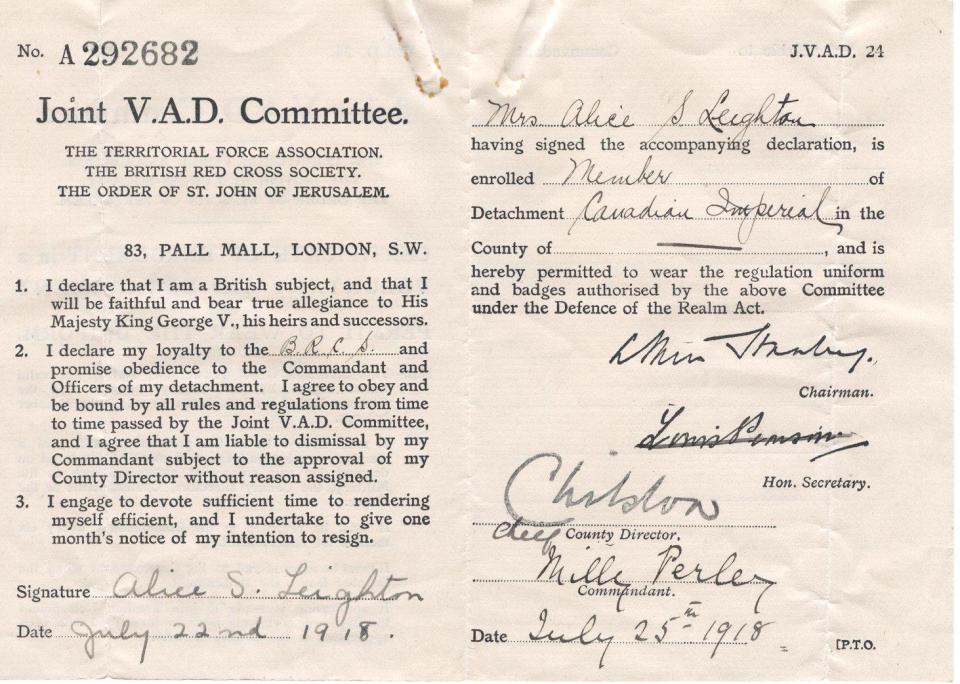 No. A 292682
Joint V.A.D. Committee.
THE TERRITORIAL FORCE ASSOCIATION.
THE BRITISH RED CROSS SOCIETY.
THE ORDER OF ST. JOHN OF JERUSALEM.
83, PALL MALL, LONDON, S.W.
1. I declare that I am a British subject, and that I
will be faithful and bear true allegiance to His
Majesty King George V., his heirs and successors.
2. I declare my loyalty to the B.R.C.S. and
promise obedience to the Commandant and
Officers of my detachment. I agree to obey and
be bound by all rules and regulations from time
to time passed by the Joint V.A.D. Committee,
and I agree that I am liable to dismissal by my
Commandant subject to the approval of my
County Director without reason assigned.
3. I engage to devote sufficient time to rendering
myself efficient, and I undertake to give one
month's notice of my intention to resign.
Signature Alice S. Leighton
Date July 22nd 1918.
J.V.A.D. 24
Mrs Alice S Leighton
having signed the accompanying declaration, is
enrolled Member of
Detachment Canadian Imperial in the
County of , and is
hereby permitted to wear the regulation uniform
and badges authorised by the above Committee
under the Defence of the Realm Act.
Stanley.
Chairman.
Hon. Secretary.
Chilston
County Director.
Perley
Commandant.
Date July 25th 1918
[P.T.O.